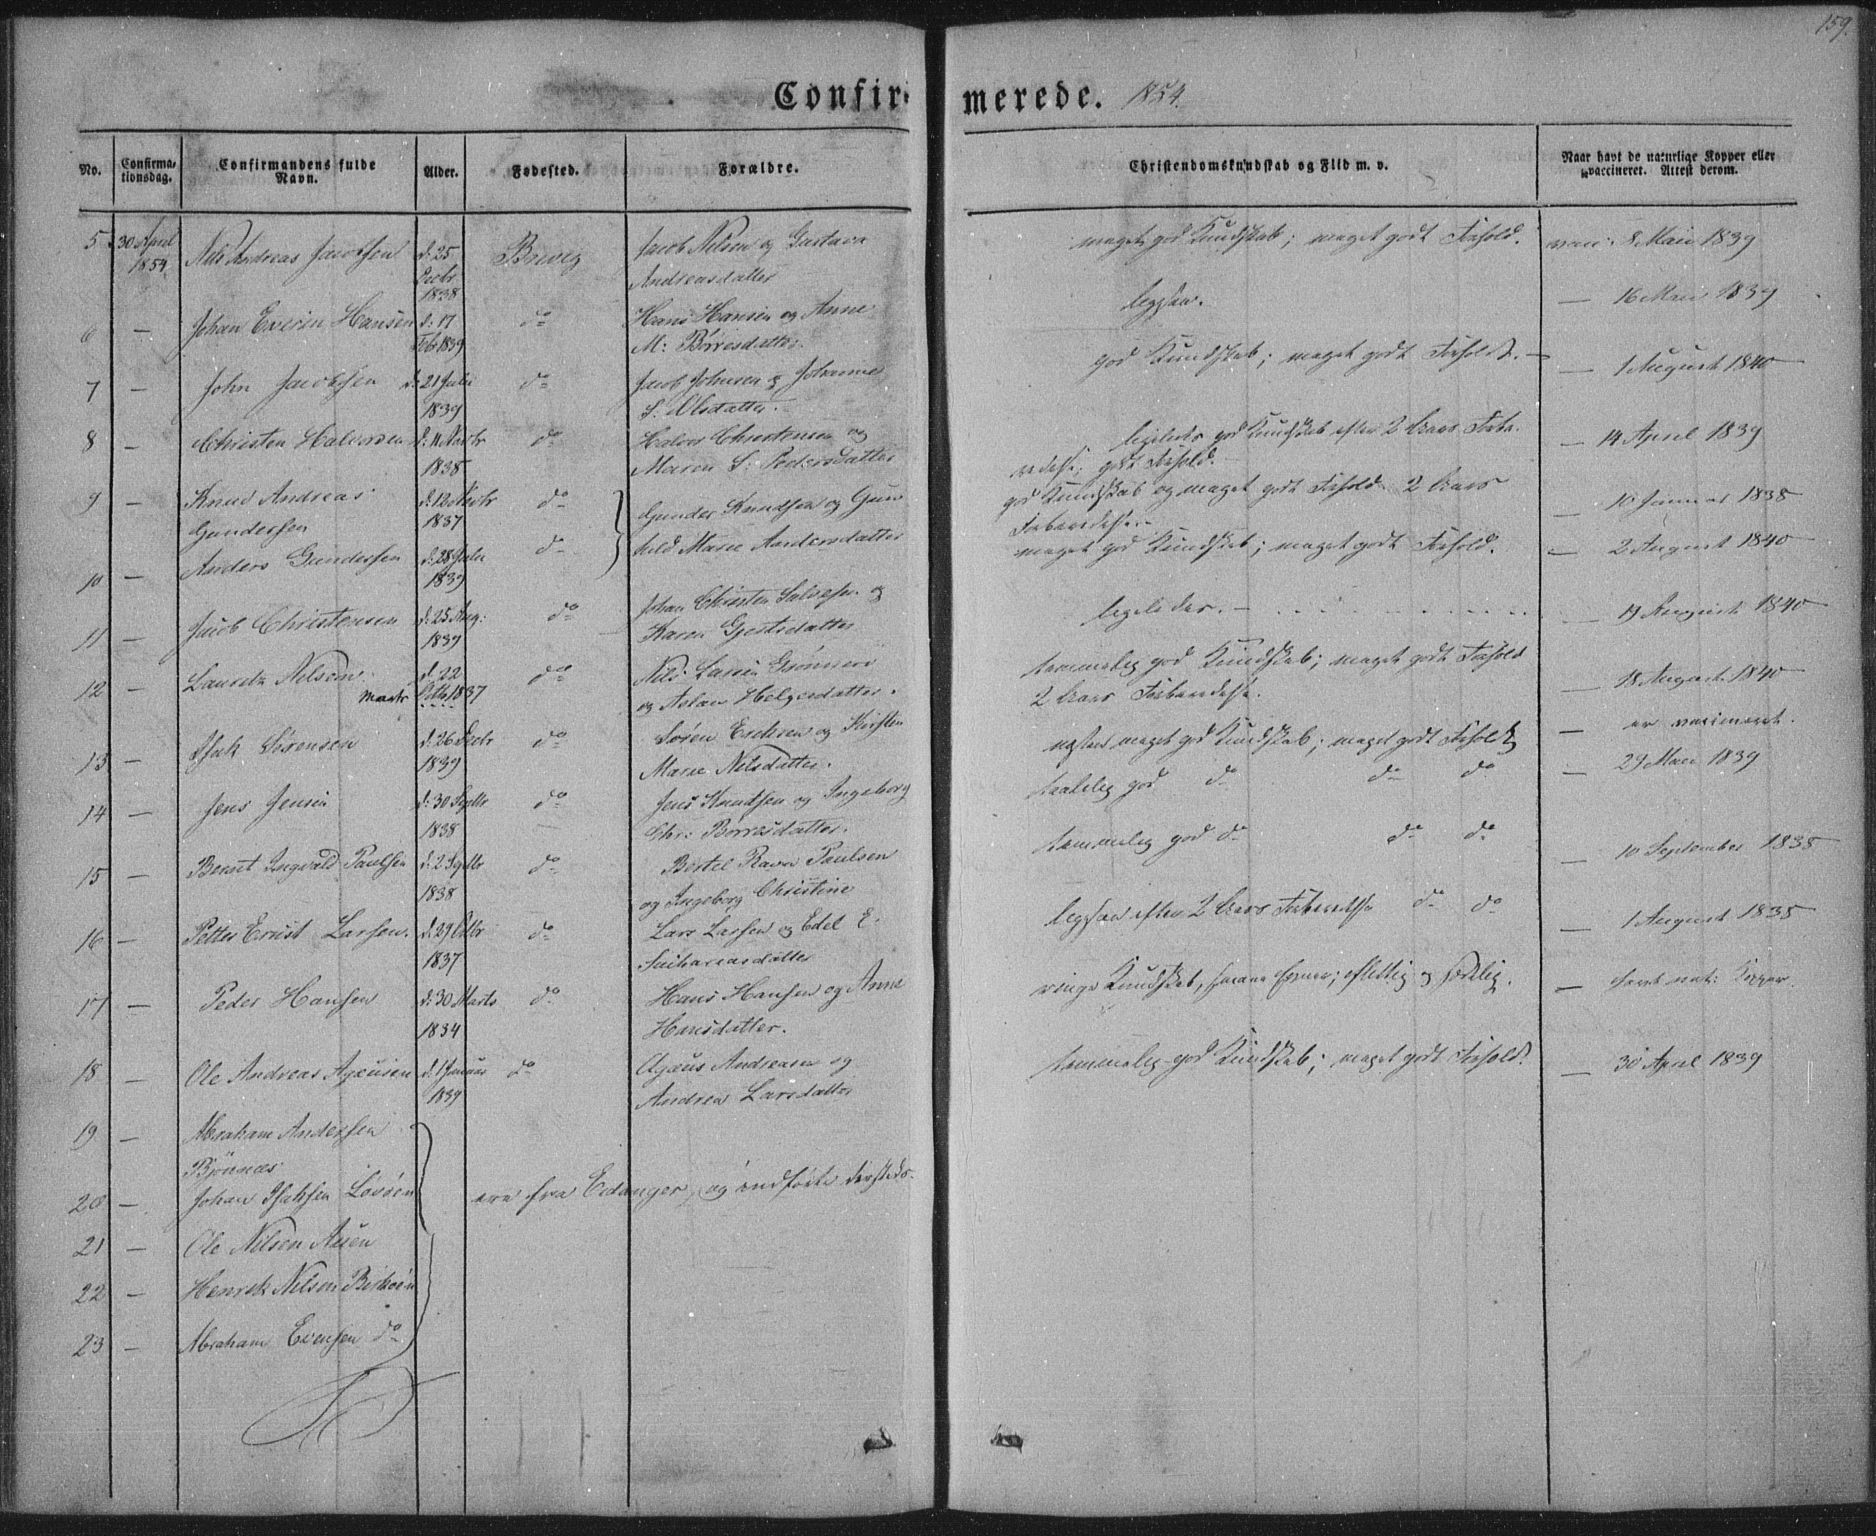 159.
Confirmerede. 1854.
No. Confirmationsdag. Confirmandens fulde Navn. Alder. Fødested. Forældre. Christendomskundskab og Flid m. v. Naar havt de naturlige Kopper eller vaccineret. Attest derom.
5 30 April 1854 Nils Andreas Jacobsen d: 25 Decbr 1838 Brevig Jacob Nilsen og Gustava Andreasdatter meget god Kundskab; meget godt Forhold. vacc: 8 Mai 1839
6 — Johan Everin Hansen d: 17 Febr 1839 do Hans Hansen og Anne M: Börresdatter ligesaa. — 16 Mai 1839
7 — John Jacobsen d: 21 Juli 1839 do Jacob Johnsen og Johanne S. Olsdatter. god Kundskab; meget godt Forhold. — 1 August 1840
8 — Christen Halvorsen d: 11 Novbr 1838 do Halvor Christensen og Maren S: Pedersdatter ligeledes god Kundskab efter 2 Aars Forberedelse; godt Forhold. — 14 April 1839
9 — Knud Andreas Gundersen d: 12 1837 do Gunder Knudsen og Gunhild Marie Andersdatter god Kundskab og meget godt Forhold 2 Aars Forberedelse. — 10 Januar 1838
10 — Anders Gundersen d: 28 Juli 1839 do meget god Kundskab; meget godt Forhold. — 2 August 1840
11 — Jacob Christensen d: 25 Aug: 1839 do Johan Christen Salvesen og Karen Gjertsdatter ligeledes. — 19 August 1840
12 — Lauritz Nilsen d. 22 Octb. 1837 Marts do Nils Larsen og Aslau Helgesdatter. temmelig god Kundskab; meget godt Forhold 2 Aars Forberedelse. — 18 August 1840
13 — Isak Sörensen d: 26 Febr 1839 do Sören Erichsen og Kirsten Marie Nilsdatter. næsten meget god Kundskab; meget godt Forhold — er vaccineret.
14 — Jens Jensen d: 30 Septbr 1838 do Jens Knudsen og Ingeborg Chr: Börresdatter. taalelig god do do do — 29 Mai 1839
15 — Bernt Ingvald Paulsen d: 2 Septbr 1838 do Bertel Ravn Paulsen og Ingeborg Christine temmelig god do do do — 10 September 1838
16 — Petter Ernst Larsen. d. 29 Octbr 1837 do Lars Larsen og Edel E. Sachariasdatter ligesaa efter 2 Aars Forberedelse do do — 1 August 1838
17 — Peder Hansen d: 30 Marts 1834 do Hans Hansen og Anne Hansdatter. ringe Kundskab, svage Evner; flittig og sædelig. — havt nat: Kopper.
18 — Ole Andreas Agæusen d. 1 Januar 1839 do Agæus Andreasen og Andrea Larsdatter temmelig god Kundskab; meget godt Forhold. — 30 April 1839
19 — Abraham Andersen Björnnæs
20 — Johan Isaksen Lövöen ere fra Eidanger, og indförte dersteds.
21 — Ole Nilsen Aasen
22 — Henrik Nilsen
23 — Abraham Evensen do